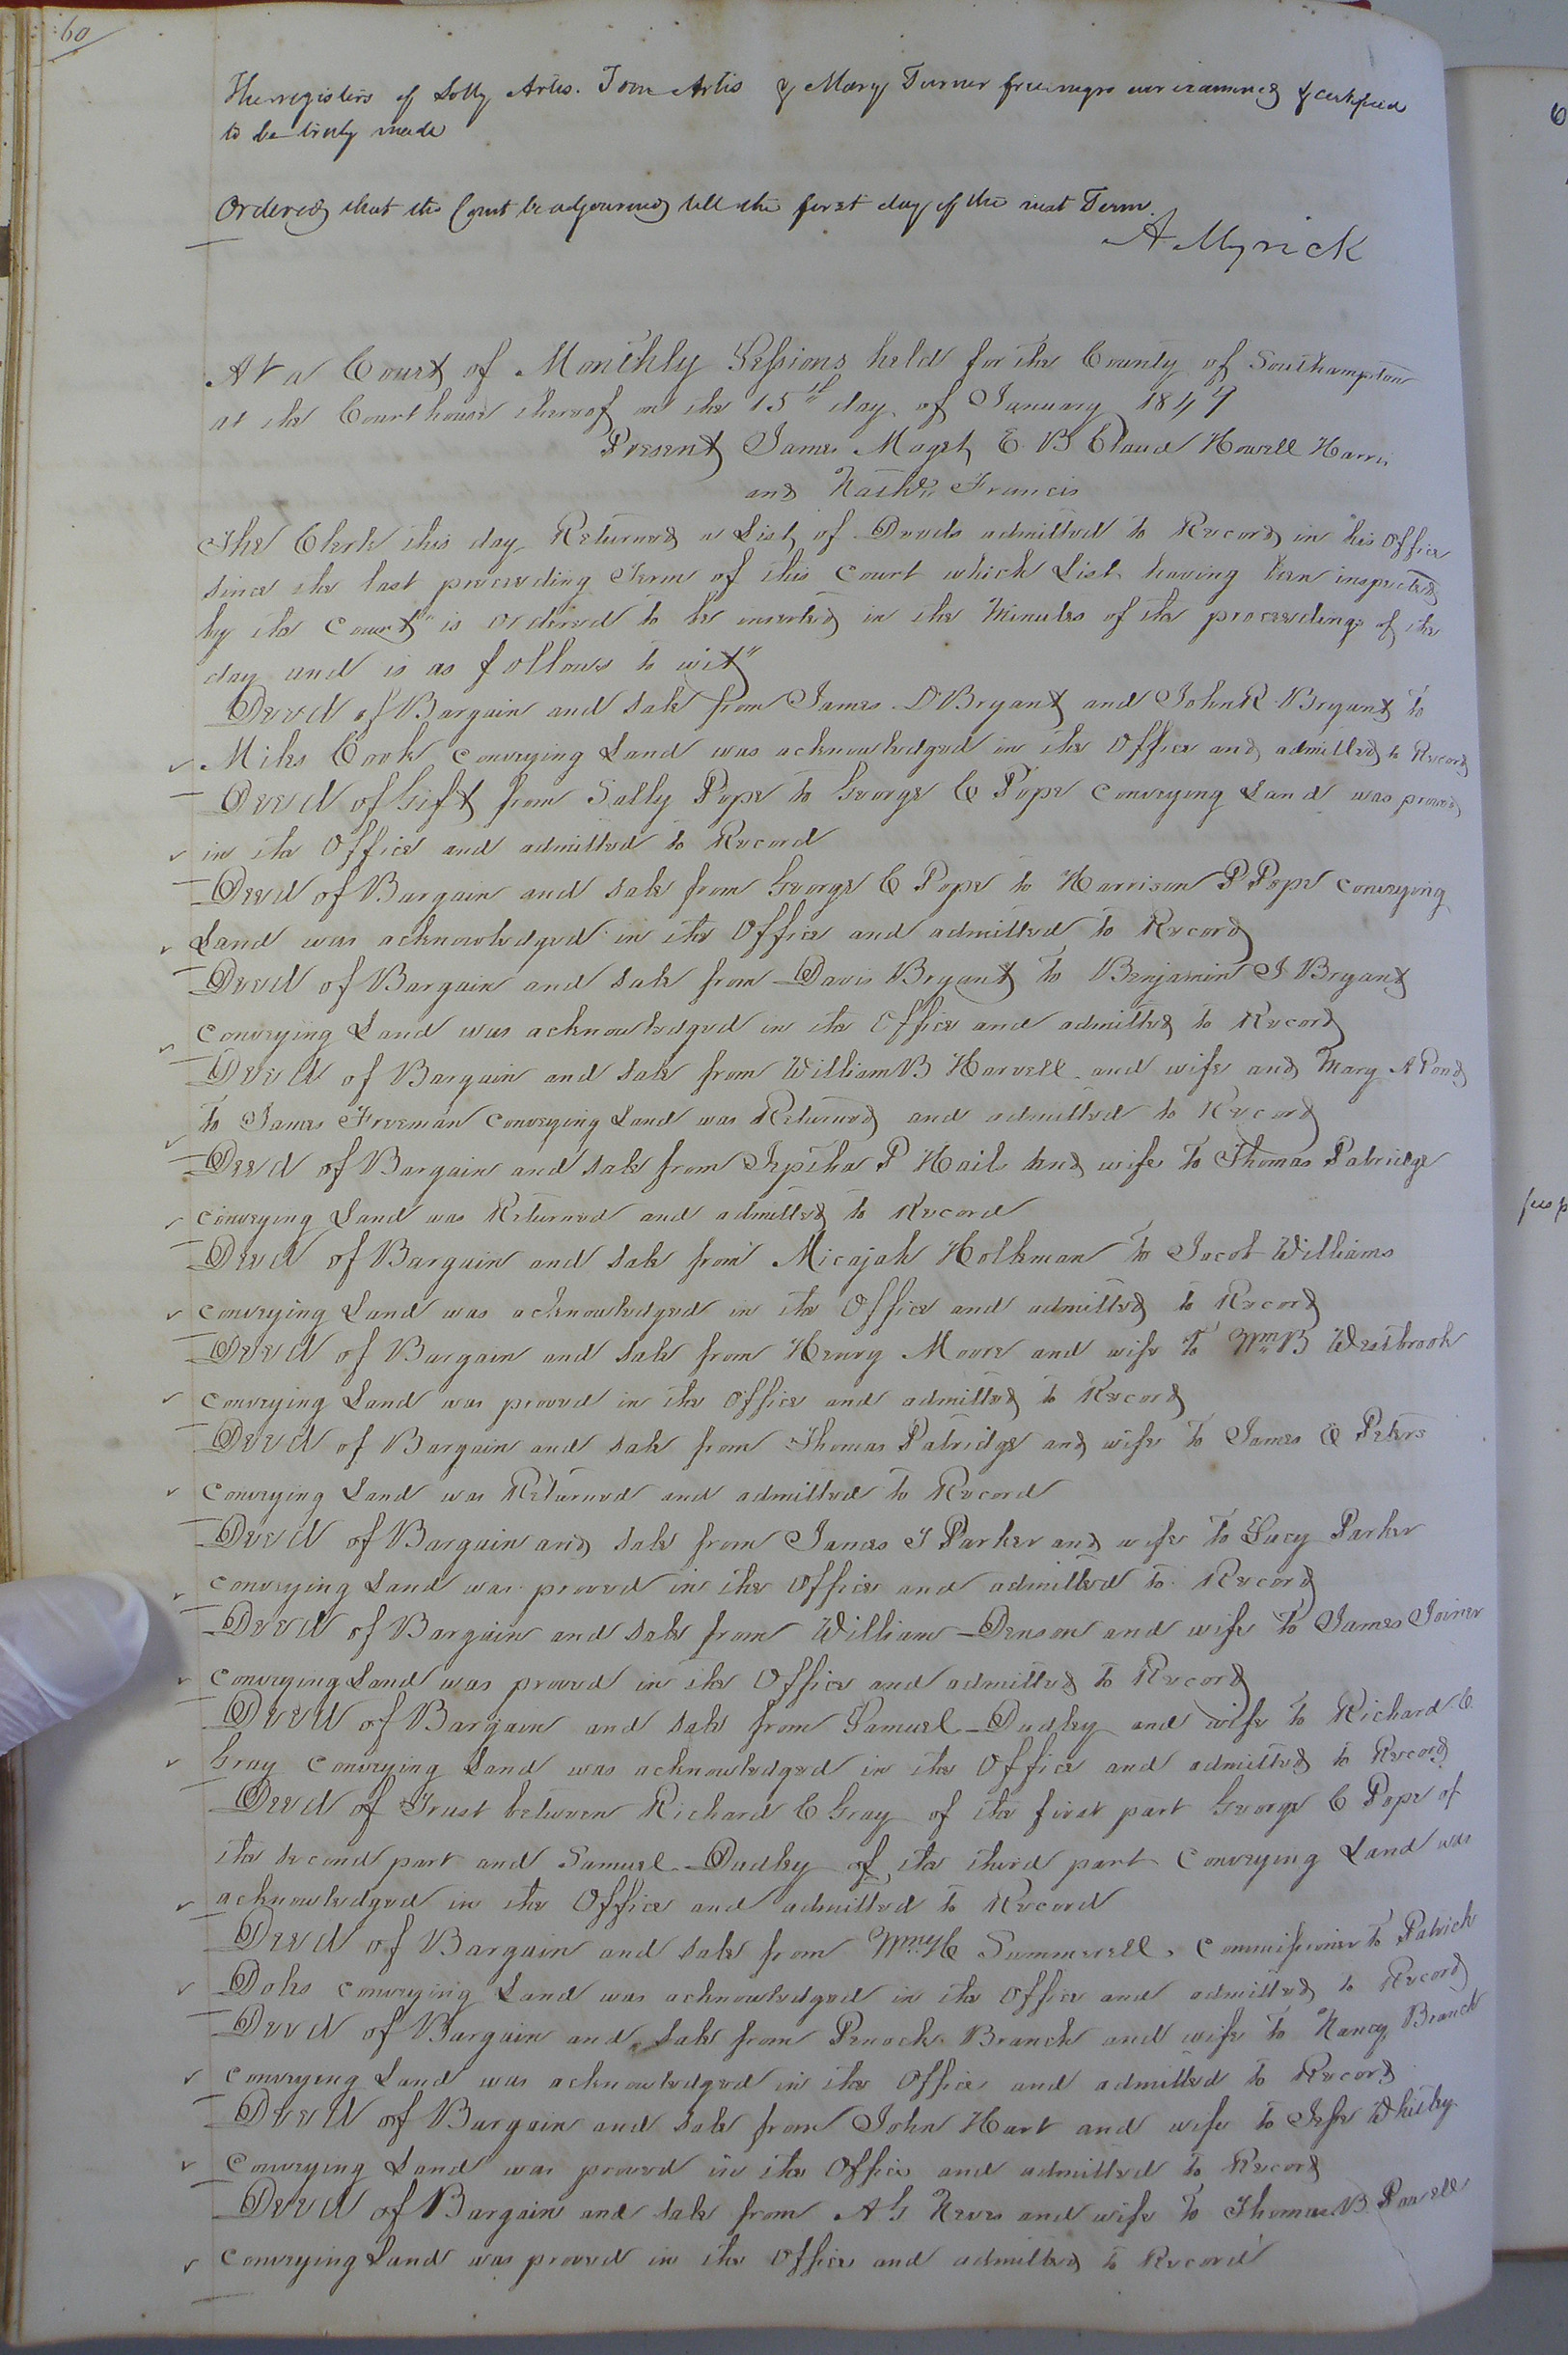 60
The registers of Dolly Artis. Tom Artis & Mary Turner free negro were examined & certified
to be truly made
Ordered that the Court be adjourned till the first day of the next Term.
A Myrick
At a Court of Monthly Sessions held for the County of Southampton
at the Courthouse thereof on the 15th day of January 1847
Present James Maget, E B Claud Howell Harris
and Nathl Francis
The Clerk this day Returned a List of Deeds admitted to Record in his Office
since the last preceeding Term of this Court which List having been inspected
by the Court" is ordered to be inserted in the Minutes of the proceedings of the
day and is as follows to wit"
Deed of Bargain and Sale from James D Bryant and John R. Bryant to
Miles Cook Conveying Land was acknowledged in the Office and admitted to Record
Deed of Gift from Sally Pope to George C Pope Conveying Land was proved
in the Office and admitted to Record
Deed of Bargain and Sale from George C Pope to Harrison P Pope conveying
Land was acknowledged in the Office and admitted to Record
Deed of Bargain and Sale from Davis Bryant to Benjamin I Bryant
conveying Land was acknowledged in the Office and admitted to Record
Deed of Bargain and Sale from William B Harvell and wife and Mary A Pond
to James Freeman conveying Land was Returned and admitted to Record
Deed of Bargain and Sale from Jeptha P Haile and wife to Thomas Patridge
conveying Land was Returned and admitted to Record
Deed of Bargain and Sale from Micajah Holleman to Jacob Williams
conveying Land was acknowledged in the Office and admitted to Record
Deed of Bargain and Sale from Henry Moore and wife to Wm B Westbrook
conveying Land was proved in the Office and admitted to Record
Deed of Bargain and Sale from Thomas Patridge and wife to James Peters
Conveying Land was Returned and admitted to Record
Deed of Bargain and Sale from James J Parker and wife to Lucy Parker
conveying Land was proved in the Office and admitted to Record
Deed of Bargain and Sale from William Denson and wife to James Joiner
conveying Land was proved in the Office and admitted to Record
Deed of Bargain and Sale from Samuel Dudley and wife to Richard C
Gray conveying Land was acknowledged in the Office and admitted to Record
Deed of Trust between Richard C Gray of the first part George C Pope of
the second part and Samuel Dudley of the third part Conveying Land was
acknowledged in the Office and admitted to Record
Deed of Bargain and Sale from Summerell, Commissioner to Patrick
Doles conveying Land was acknowledged in the Office and admitted to Record
Deed of Bargain and Sale from Branch and wife to Nancy Branch
conveying Land was acknowledged in the Office and admitted to Record
Deed of Bargain and Sale from John Hart and wife to Jesse Whitley
Conveying Land was proved in the Office and admitted to Record
Deed of Bargain and Sale from A G Neves and wife to Thomas B Powell
Conveying Land was proved in the Office and admitted to Record